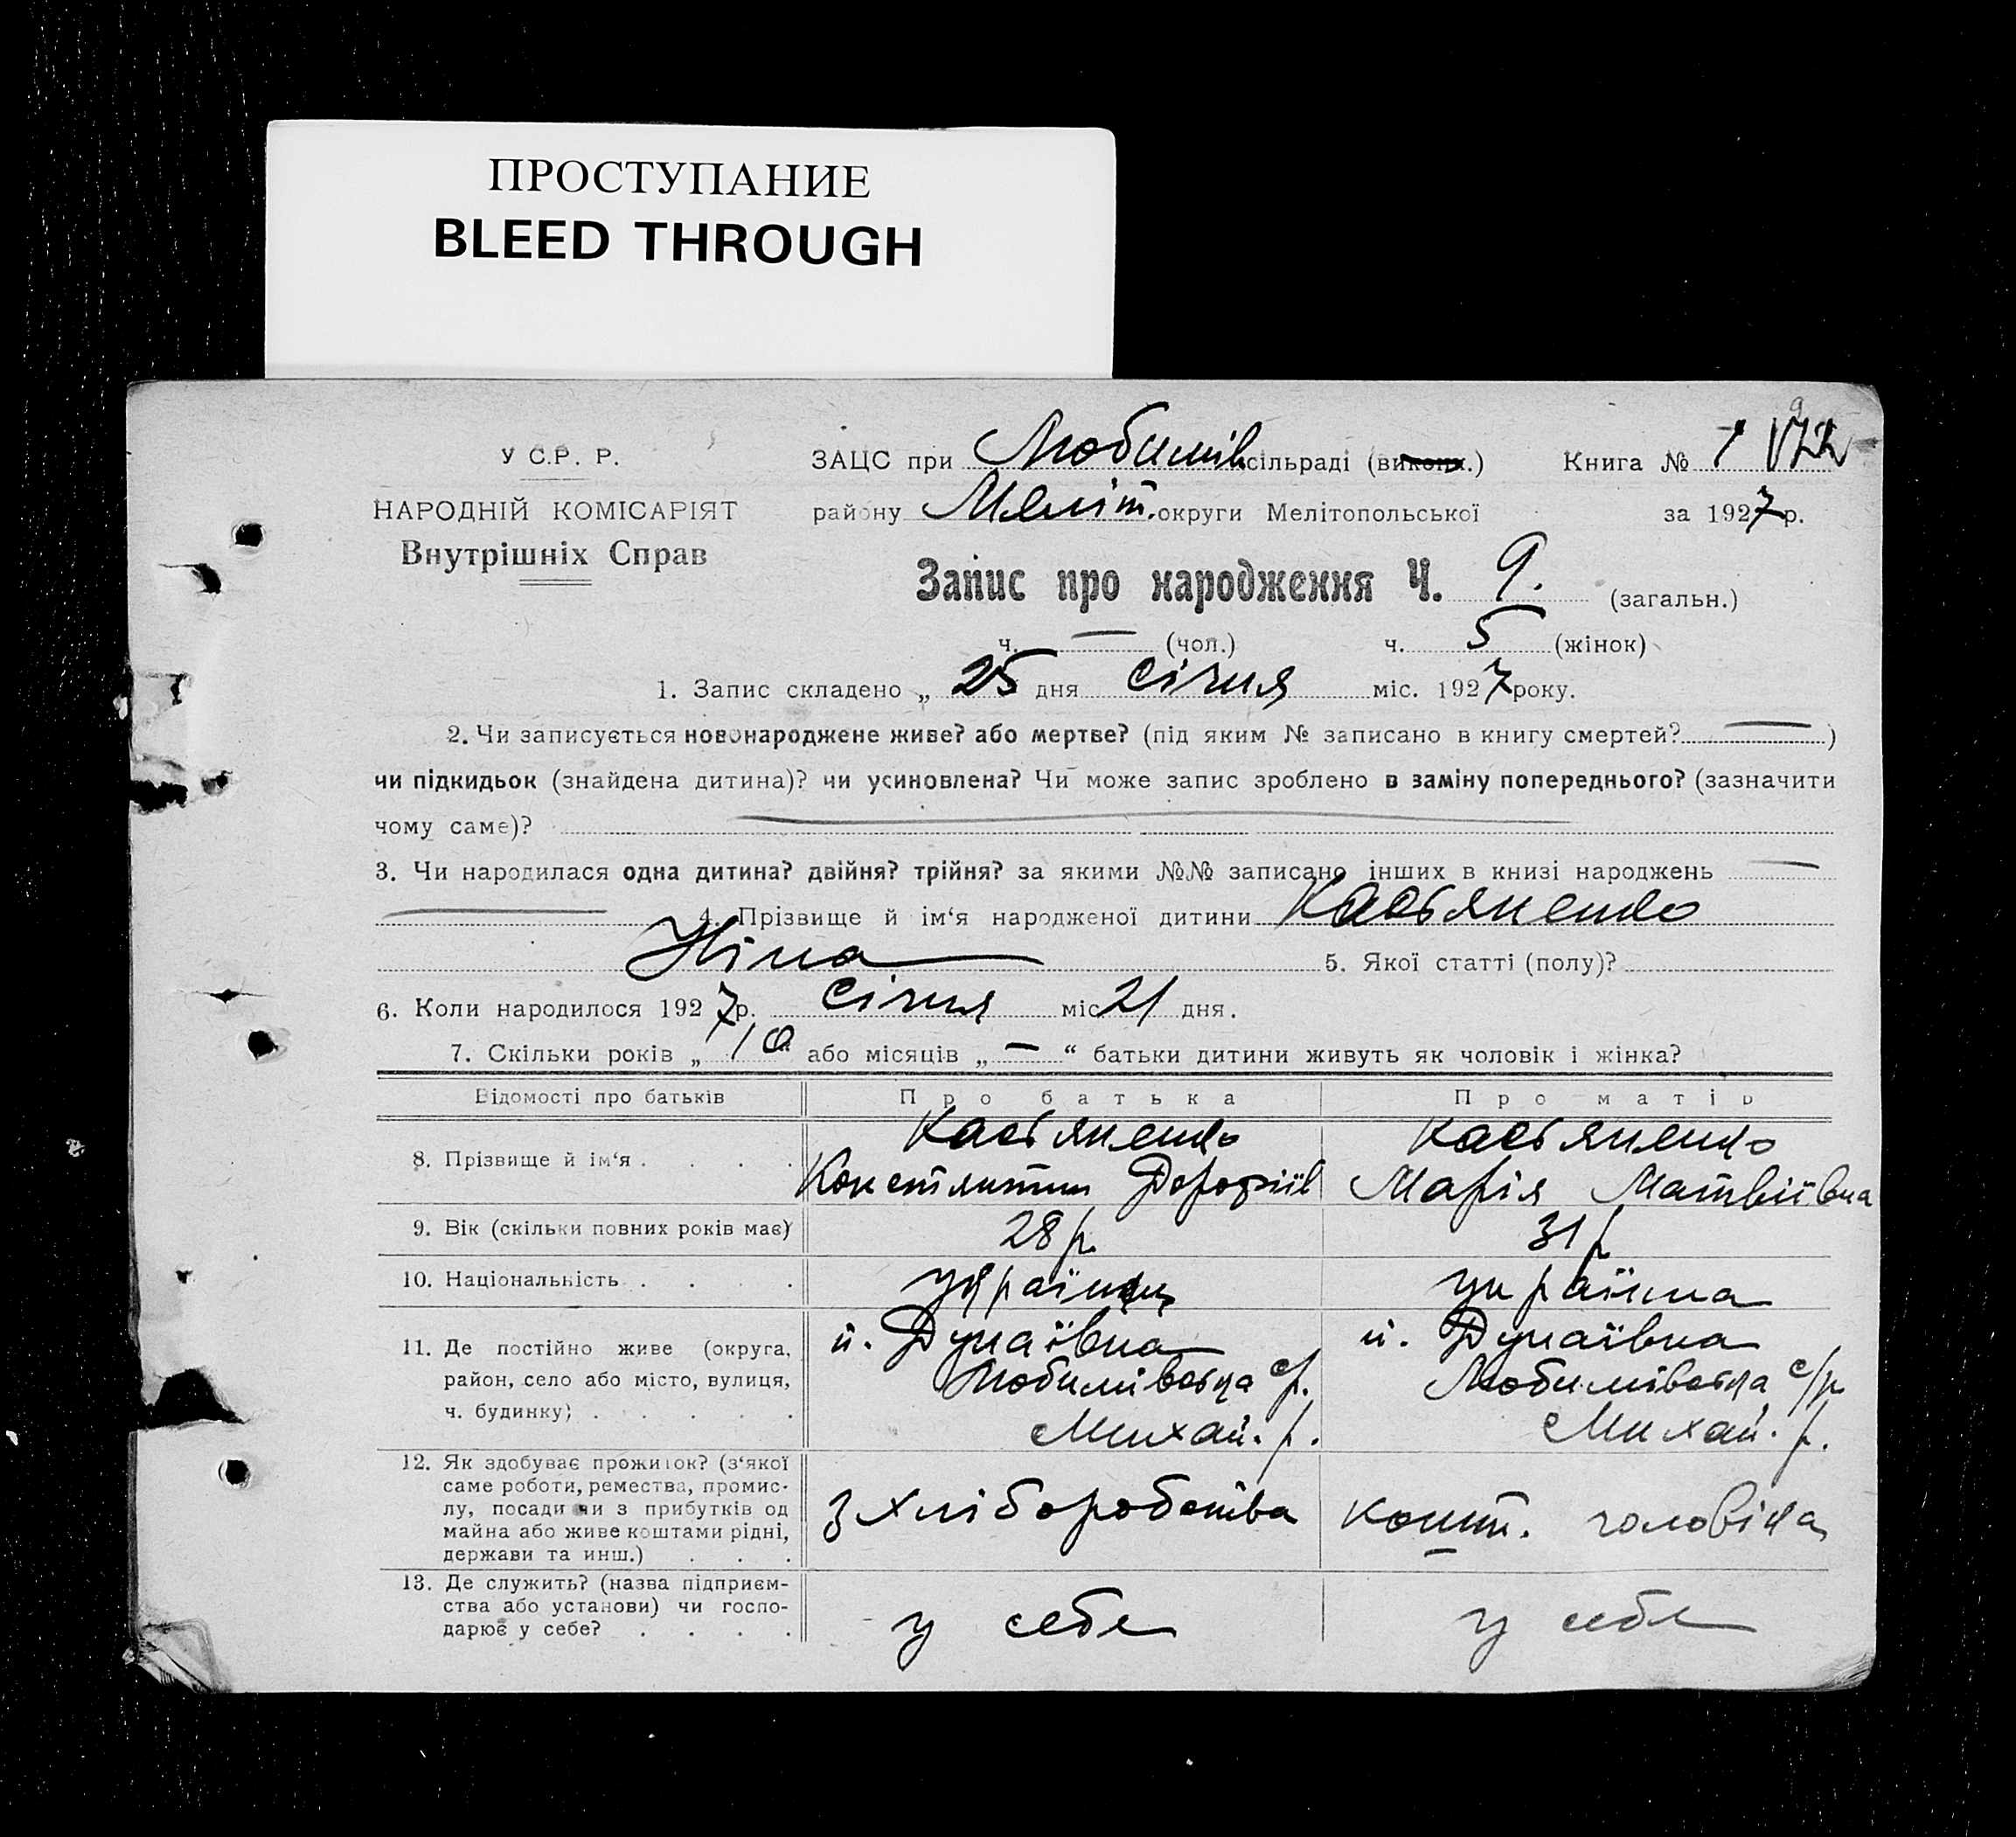 ПРОСТУПАНИЕ
BLEED THROUGH
У С.Р. Р.
НАРОДНІЙ КОМІСАРІЯТ
Внутрішніх Справ
ЗАЦС при Любимів. сільраді (виконк.) Книга № 1
району Меліт. округи Мелітопольської за 1927 р.
Запис про народження Ч. 9. (загальн.)
ч. — (чол.) ч. 5 (жінок)
1. Запис складено „ 25 дня січня міс. 1927 року.
2. Чи записується новонароджене живе? або мертве? (під яким № записано в книгу смертей? — )
чи підкидьок (знайдена дитина)? чи усиновлена? Чи може запис зроблено в заміну попереднього? (зазначити
чому саме)? —
3. Чи народилася одна дитина? двійня? трійня? за якими №№ записано інших в книзі народжень —
— 4. Прізвище й ім‘я народженої дитини Касьяненко
Ніна 5. Якої статті (полу)?
6. Коли народилося 1927 р. січня міс 21 дня.
7. Скільки років „ 10 або місяців „ — “ батьки дитини живуть як чоловік і жінка?
Відомості про батьків Про батька Про матір
8. Прізвище й ім‘я . . . . Касьяненко Константин Дорофіів Касьяненко Марія Матвіївна
9. Вік (скільки повних років має) 28 р. 31 р
10. Національність . . . . українец українка
11. Де постійно живе (округа,
район, село або місто, вулиця,
ч. будинку) . . . . .
п. Дунаївка
Любимівська с/р.
Михай. р.
п. Дунаївка
Любимівська с/р
Михай. р.
12. Як здобуває прожиток? (з‘якої
саме роботи, ремества, промис-
лу, посади чи з прибутків од
майна або живе коштами рідні,
держави та инш.) . . .
з хліборобства
кошт. чоловіка
13. Де служить? (назва підприєм-
ства або установи) чи госпо-
дарює у себе? . . . .
у себе
у себе